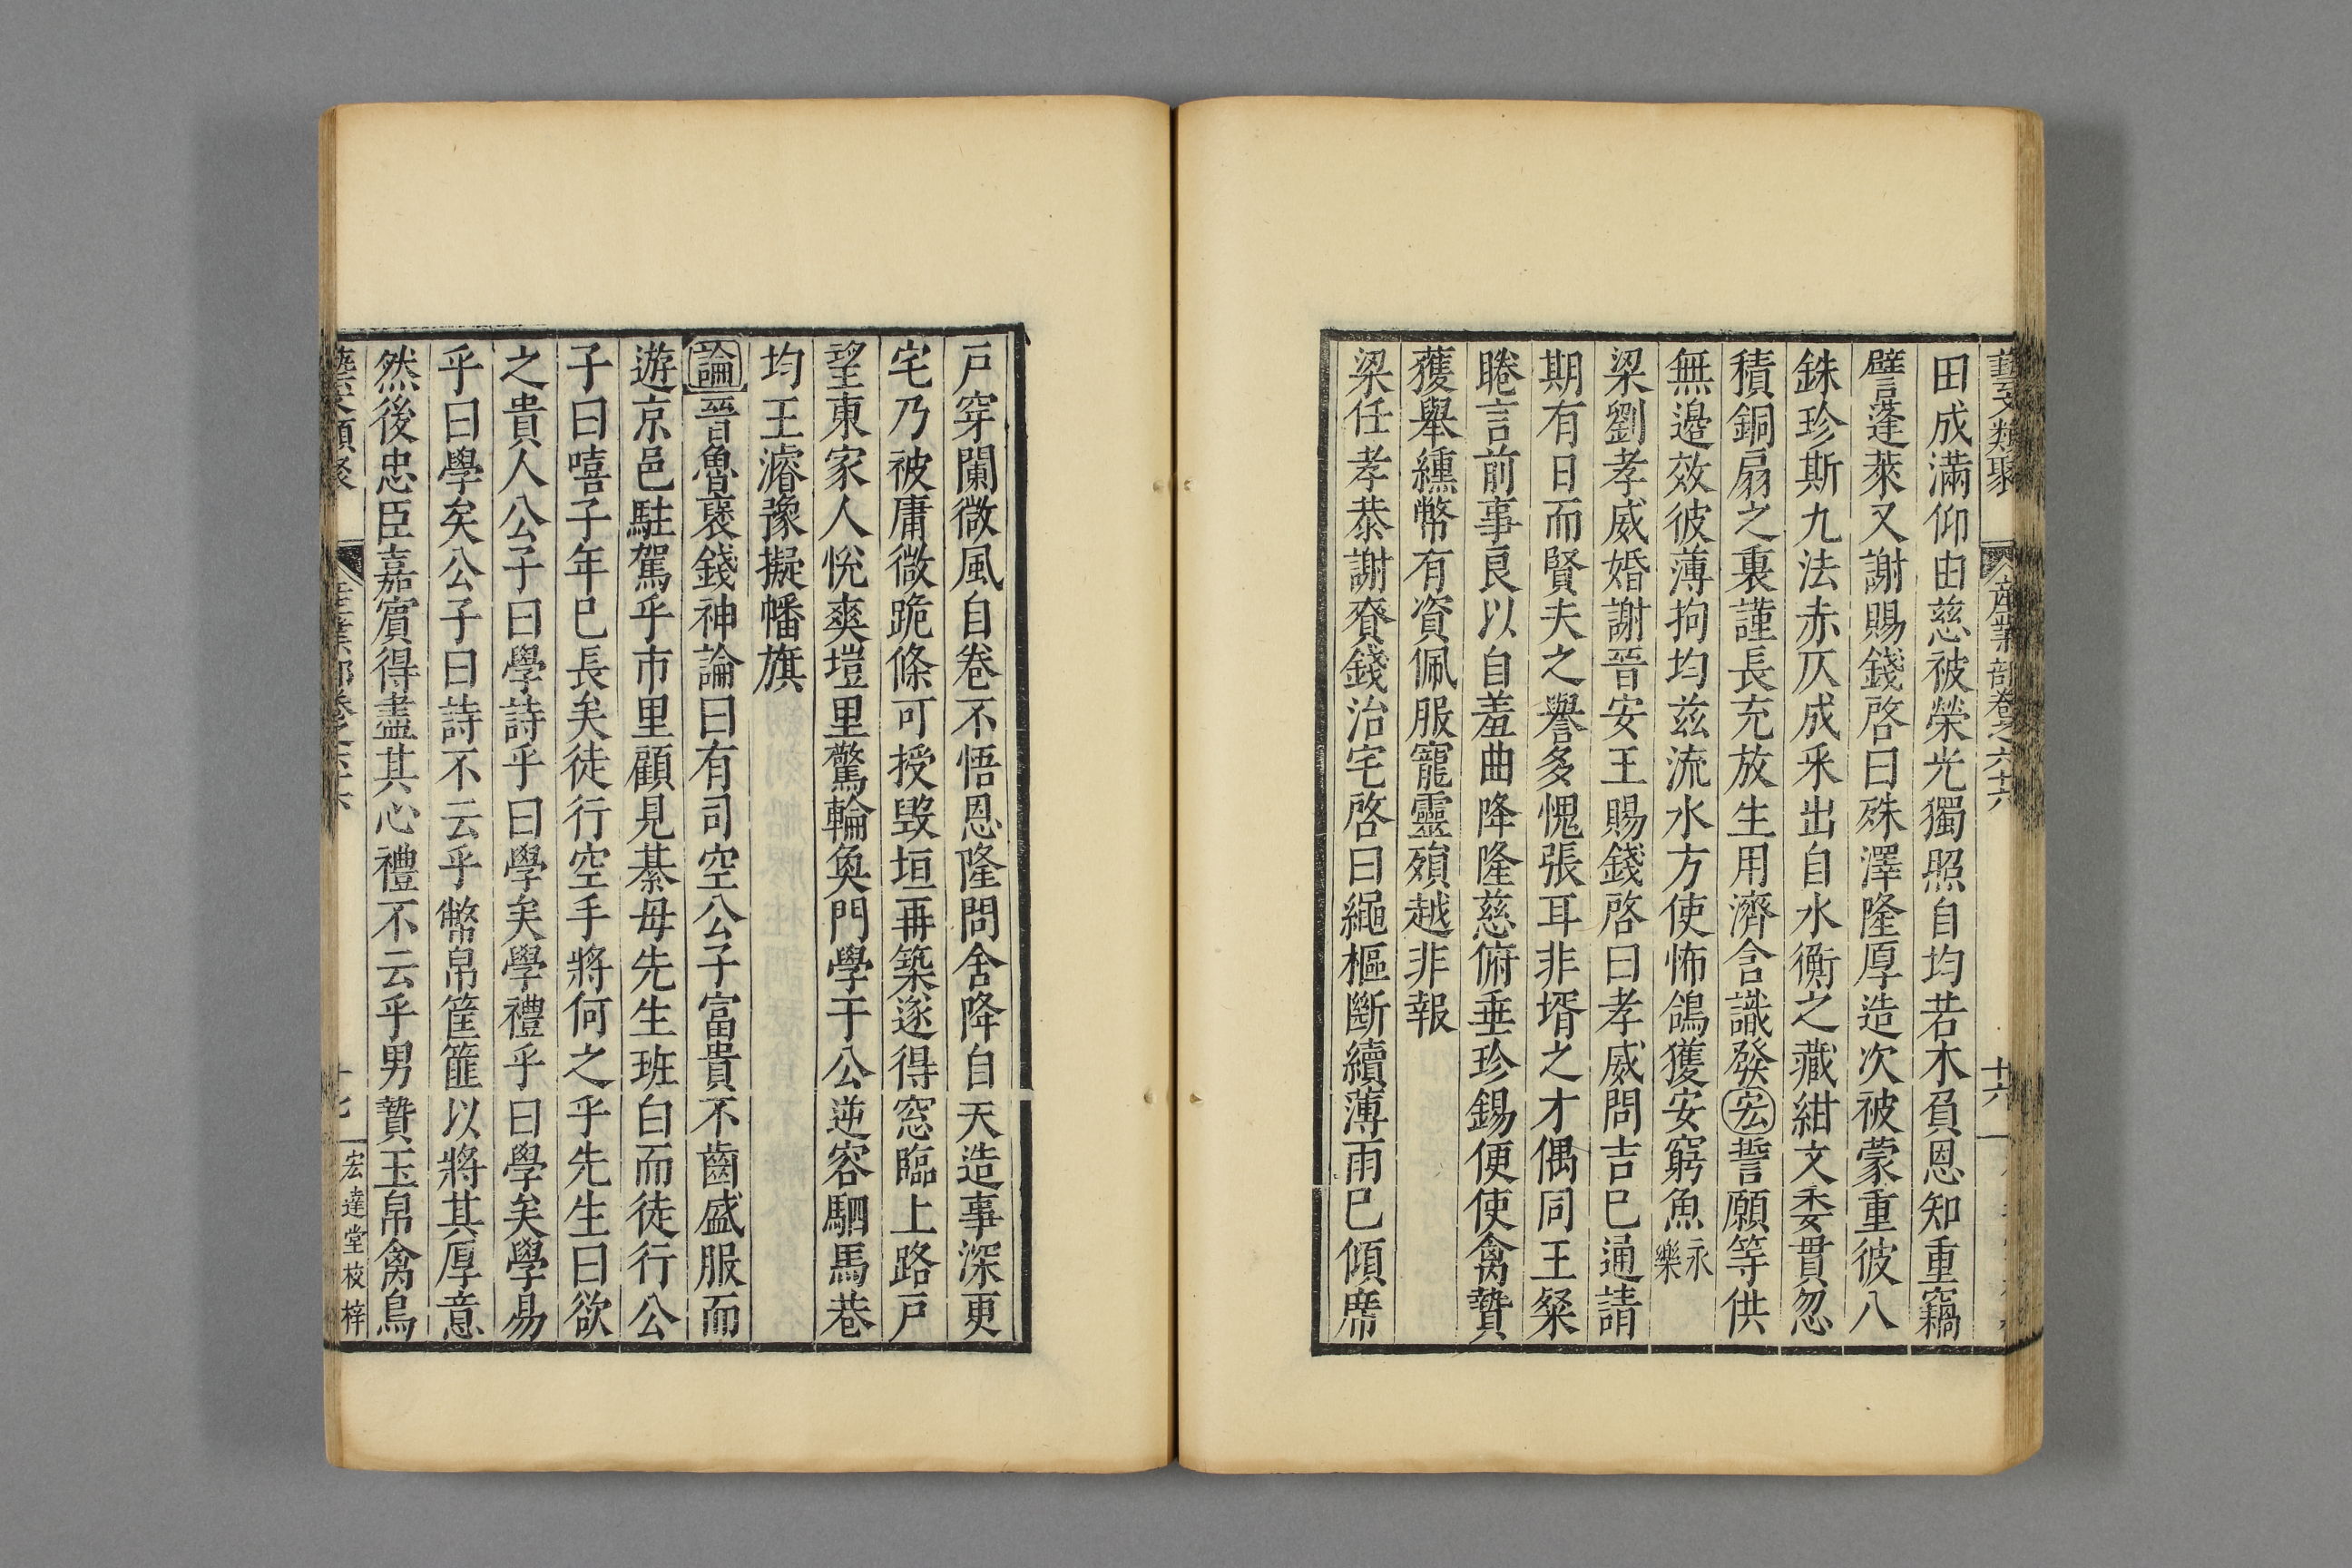 藝文類聚 產業部卷之六十六 十六
田成滿仰由慈被榮光獨照自均若木負恩知重竊
譬蓬萊又謝賜錢啓曰殊澤隆厚造次被蒙重彼八
銖珍斯九法赤仄成釆出自水衡之藏紺文委貫忽
積銅扇之裏謹長充放生用濟含識發宏誓願等供
無邉效彼薄拘均兹流水方使怖鴿獲安窮魚永樂
梁劉孝威婚謝晉安王賜錢啓曰孝威問吉巳通請
期有日而賢夫之譽多愧張耳非壻之才偶同王粲
睠言前事良以自羞曲降隆慈俯垂珍錫便使禽贄
獲舉纁幣有資佩服寵靈殞越非報
梁任孝恭謝賚錢治宅啓曰繩樞斷續薄雨巳傾席
戸穿闌微風自卷不悟恩隆問舍降自天造事深更
宅乃被庸微跪條可授毀垣再築遂得窓臨上路戸
望東家人悅爽塏里驚輪奐門學于公逆容駟馬巷
均王濬豫擬幡旗
論晉魯褒錢神論曰有司空公子富貴不齒盛服而
遊京邑駐駕乎市里顧見綦毋先生班白而徒行公
子曰嘻子年巳長矣徒行空手將何之乎先生曰欲
之貴人公子曰學詩乎曰學矣學禮乎曰學矣學易
乎曰學矣公子曰詩不云乎幣帛筐篚以將其厚意
然後忠臣嘉賔得盡其心禮不云乎男贄玉帛禽鳥
藝文類聚 產業部卷之六十六 十七 宏達堂校梓